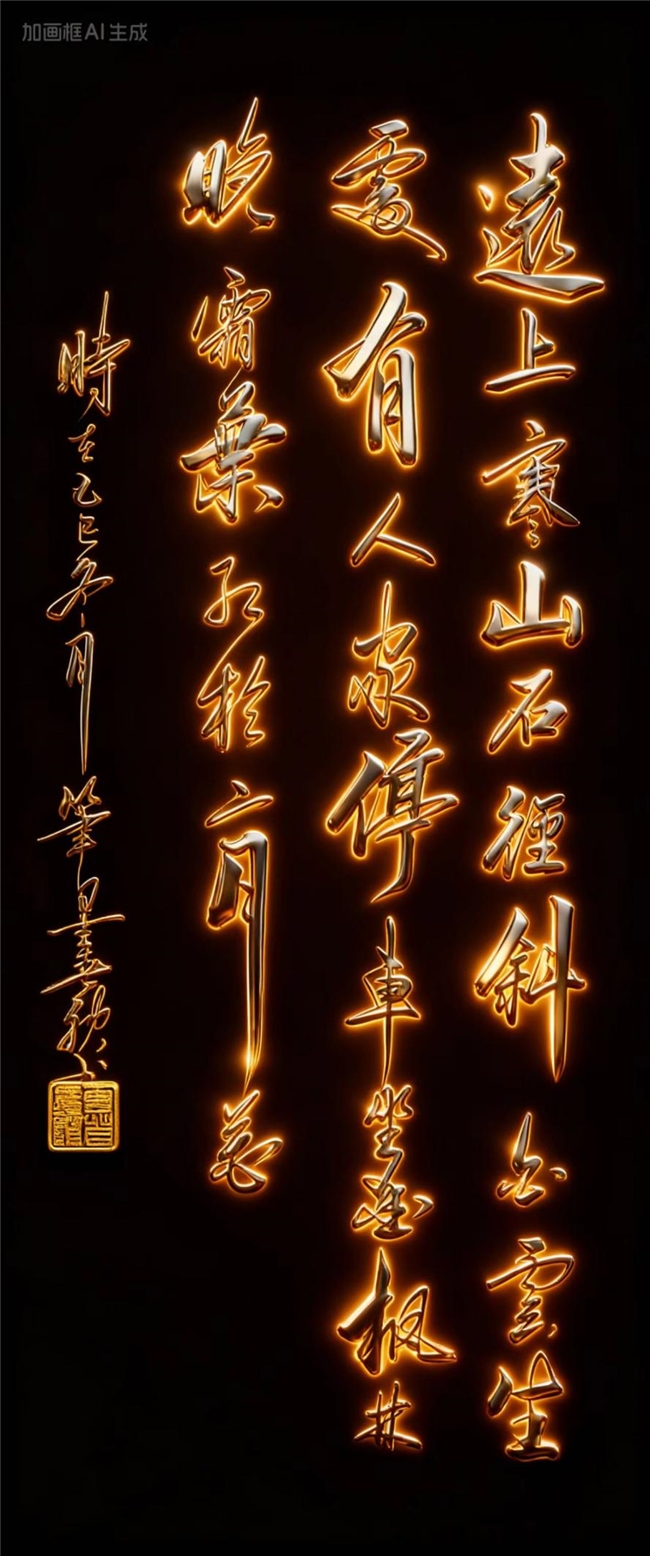 加画框AI生成
遠上寒山石徑斜白雲生
處有人家停車坐愛枫林
晚霜葉紅於二月花
時在乙巳冬月筆墨